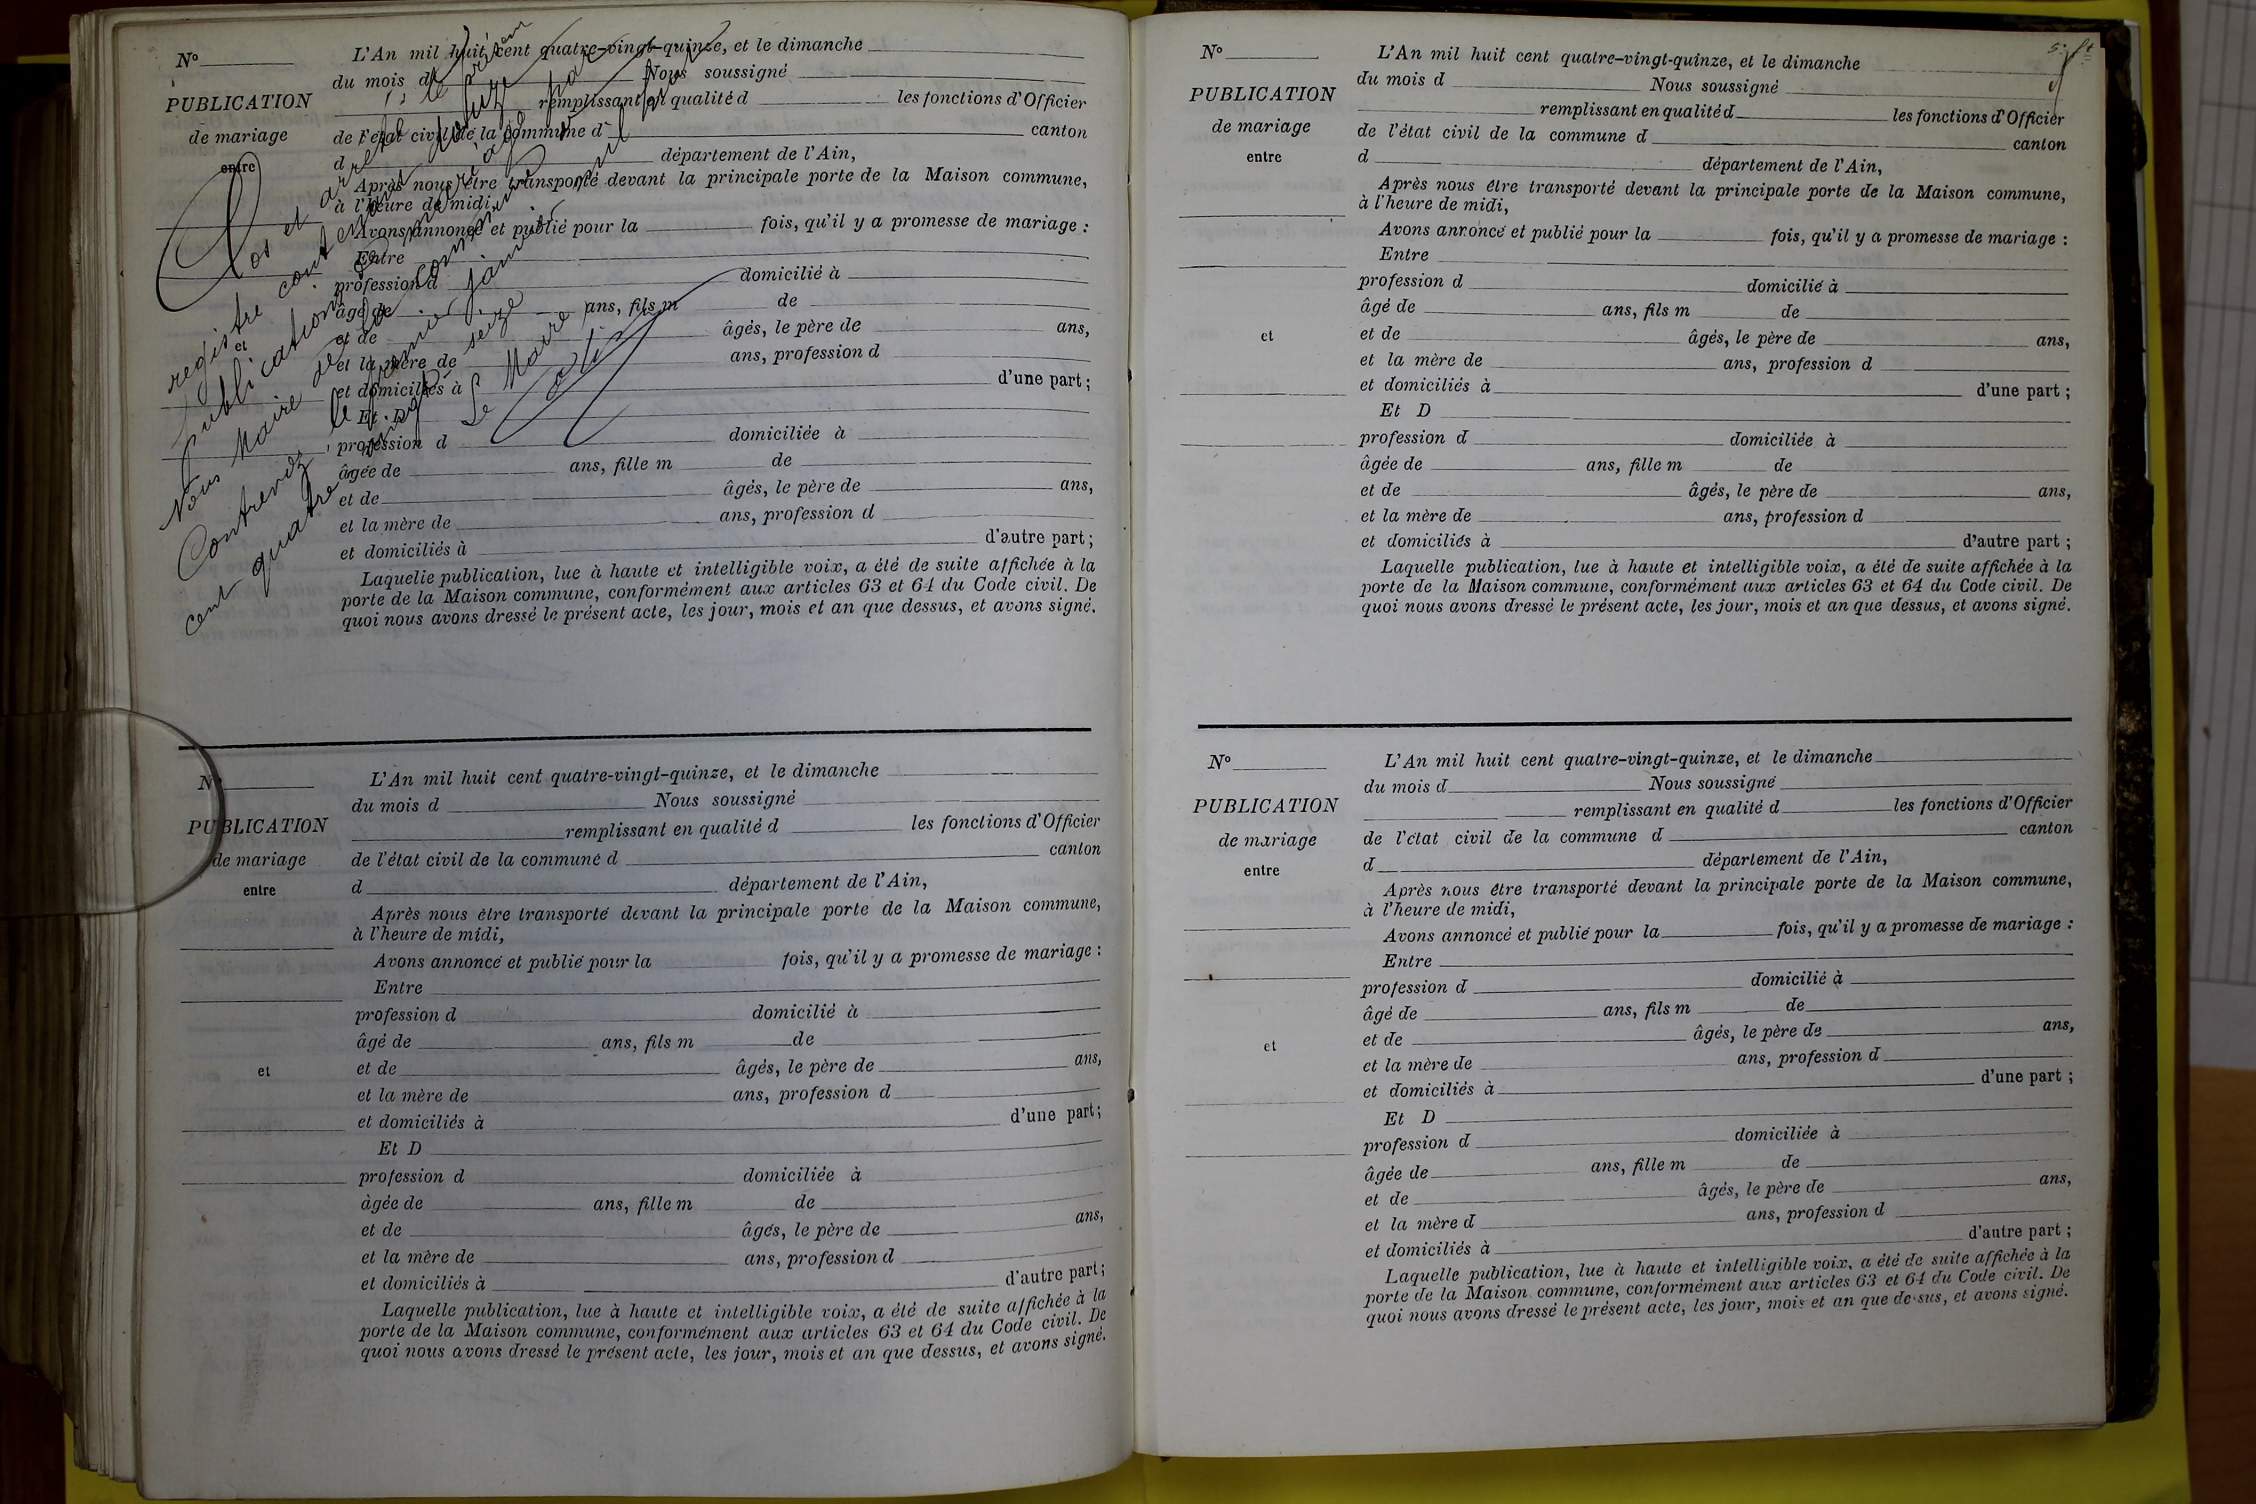 N°
PUBLICATION
de mariage
entre
et
L'An mil huit cent quatre-vingt-quinze, et le dimanche
du mois d Nous soussigné
remplissant en qualité d les fonctions d'Officier
de l'état civil de la commune d canton
d département de l'Ain,
Après nous être transporté devant la principale porte de la Maison commune,
à l'heure de midi,
Avons annoncé et publié pour la fois, qu'il y a promesse de mariage :
Entre
profession d domicilié à
âgé de ans, fils m de
et de âgés, le père de ans,
et la mère de ans, profession d
et domiciliés à d'une part ;
Et D
profession d domiciliée à
âgée de ans, fille m de
et de âgés, le père de ans,
et la mère de ans, profession d
et domiciliés à d'autre part ;
Laquelle publication, lue à haute et intelligible voix, a été de suite affichée à la
porte de la Maison commune, conformément aux articles 63 et 64 du Code civil. De
quoi nous avons dressé le présent acte, les jour, mois et an que dessus, et avons signé.
Clos et arrêté le présent
registre contenant douze
publications de mariage par
Nous Maire de la commune de
Contrevoz, le premier janvier mil huit
cent quatre vingt seize
Le Maire
N°
PUBLICATION
de mariage
entre
et
L'An mil huit cent quatre-vingt-quinze, et le dimanche
du mois d Nous soussigné
remplissant en qualité d les fonctions d'Officier
de l'état civil de la commune d canton
d département de l'Ain,
Après nous être transporté devant la principale porte de la Maison commune,
à l'heure de midi,
Avons annoncé et publié pour la fois, qu'il y a promesse de mariage :
Entre
profession d domicilié à
âgé de ans, fils m de
et de âgés, le père de ans,
et la mère de ans, profession d
et domiciliés à d'une part ;
Et D
profession d domiciliée à
âgée de ans, fille m de
et de âgés, le père de ans,
et la mère de ans, profession d
et domiciliés à d'autre part ;
Laquelle publication, lue à haute et intelligible voix, a été de suite affichée à la
porte de la Maison commune, conformément aux articles 63 et 64 du Code civil. De
quoi nous avons dressé le présent acte, les jour, mois et an que dessus, et avons signé.
N°
PUBLICATION
de mariage
entre
et
L'An mil huit cent quatre-vingt-quinze, et le dimanche
du mois d Nous soussigné
remplissant en qualité d les fonctions d'Officier
de l'état civil de la commune d canton
d département de l'Ain,
Après nous être transporté devant la principale porte de la Maison commune,
à l'heure de midi,
Avons annoncé et publié pour la fois, qu'il y a promesse de mariage :
Entre
profession d domicilié à
âgé de ans, fils m de
et de âgés, le père de ans,
et la mère de ans, profession d
et domiciliés à d'une part ;
Et D
profession d domiciliée à
âgée de ans, fille m de
et de âgés, le père de ans,
et la mère de ans, profession d
et domiciliés à d'autre part ;
Laquelle publication, lue à haute et intelligible voix, a été de suite affichée à la
porte de la Maison commune, conformément aux articles 63 et 64 du Code civil. De
quoi nous avons dressé le présent acte, les jour, mois et an que dessus, et avons signé.
N°
PUBLICATION
de mariage
entre
et
L'An mil huit cent quatre-vingt-quinze, et le dimanche
du mois d Nous soussigné
remplissant en qualité d les fonctions d'Officier
de l'état civil de la commune d canton
d département de l'Ain,
Après nous être transporté devant la principale porte de la Maison commune,
à l'heure de midi,
Avons annoncé et publié pour la fois, qu'il y a promesse de mariage :
Entre
profession d domicilié à
âgé de ans, fils m de
et de âgés, le père de ans,
et la mère de ans, profession d
et domiciliés à d'une part ;
Et D
profession d domiciliée à
âgée de ans, fille m de
et de âgés, le père de ans,
et la mère d ans, profession d
et domiciliés à d'autre part ;
Laquelle publication, lue à haute et intelligible voix, a été de suite affichée à la
porte de la Maison commune, conformément aux articles 63 et 64 du Code civil. De
quoi nous avons dressé le présent acte, les jour, mois et an que dessus, et avons signé.